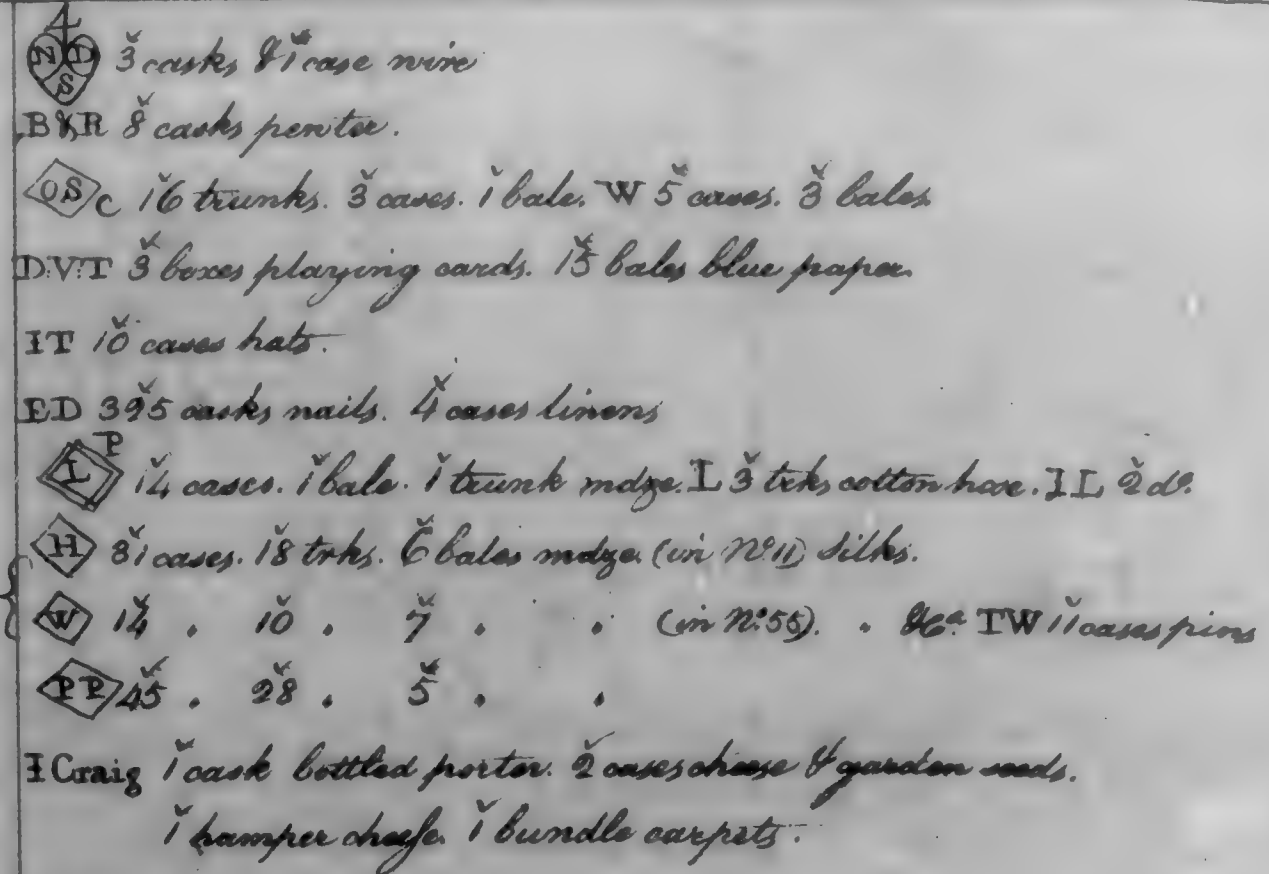 4 N D S 3 casks & 1 case wire
B&R 8 casks pewter.
OS C 16 trunks. 3 cases. 1 bale. W 5 cases. 3 bales
D.V.T 3 boxes playing cards. 15 bales blue paper.
IT 10 cases hats.
ED 395 casks nails. 4 cases linens
L P 14 cases. 1 bale. 1 trunk mdze. L 3 trks cotton hose. IL 2 do.
H 31 cases. 18 trks. 6 bales mdze. (in No. 11) silks.
W 14 . 10 . 7 . . (in No. 55) . &ca. TW 11 cases pins
PP 45 . 28 . 5 . .
I Craig 1 cask bottled porter. 2 cases cheese & garden seeds.
1 hamper cheese. 1 bundle carpets.